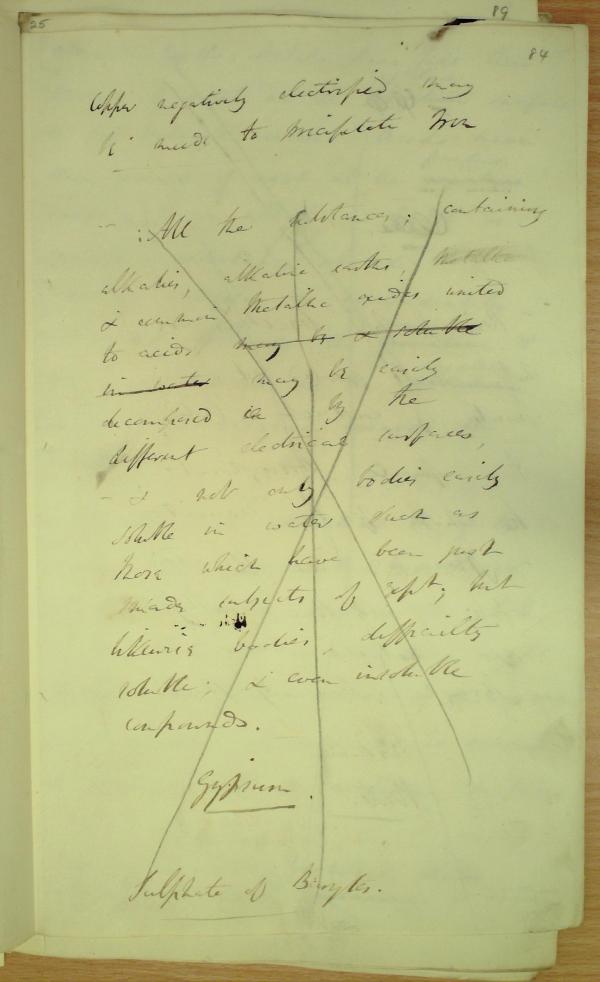 25
89
84
Copper negatively electrified may
be made to precipitate Iron
- : All the substances; containing
alkalies, alkaline earths, metallic
& common Metallic oxides united
to acids may be & soluble
in water may be easily
decomposed in by the
different electrical surfaces,
- & not only bodies easily
soluble in water such as
those which have been just
made subjects of expt; but
likewise bodies, difficultly
soluble; & even insoluble
compounds.
Gypsum.
Sulphate of Barytes.